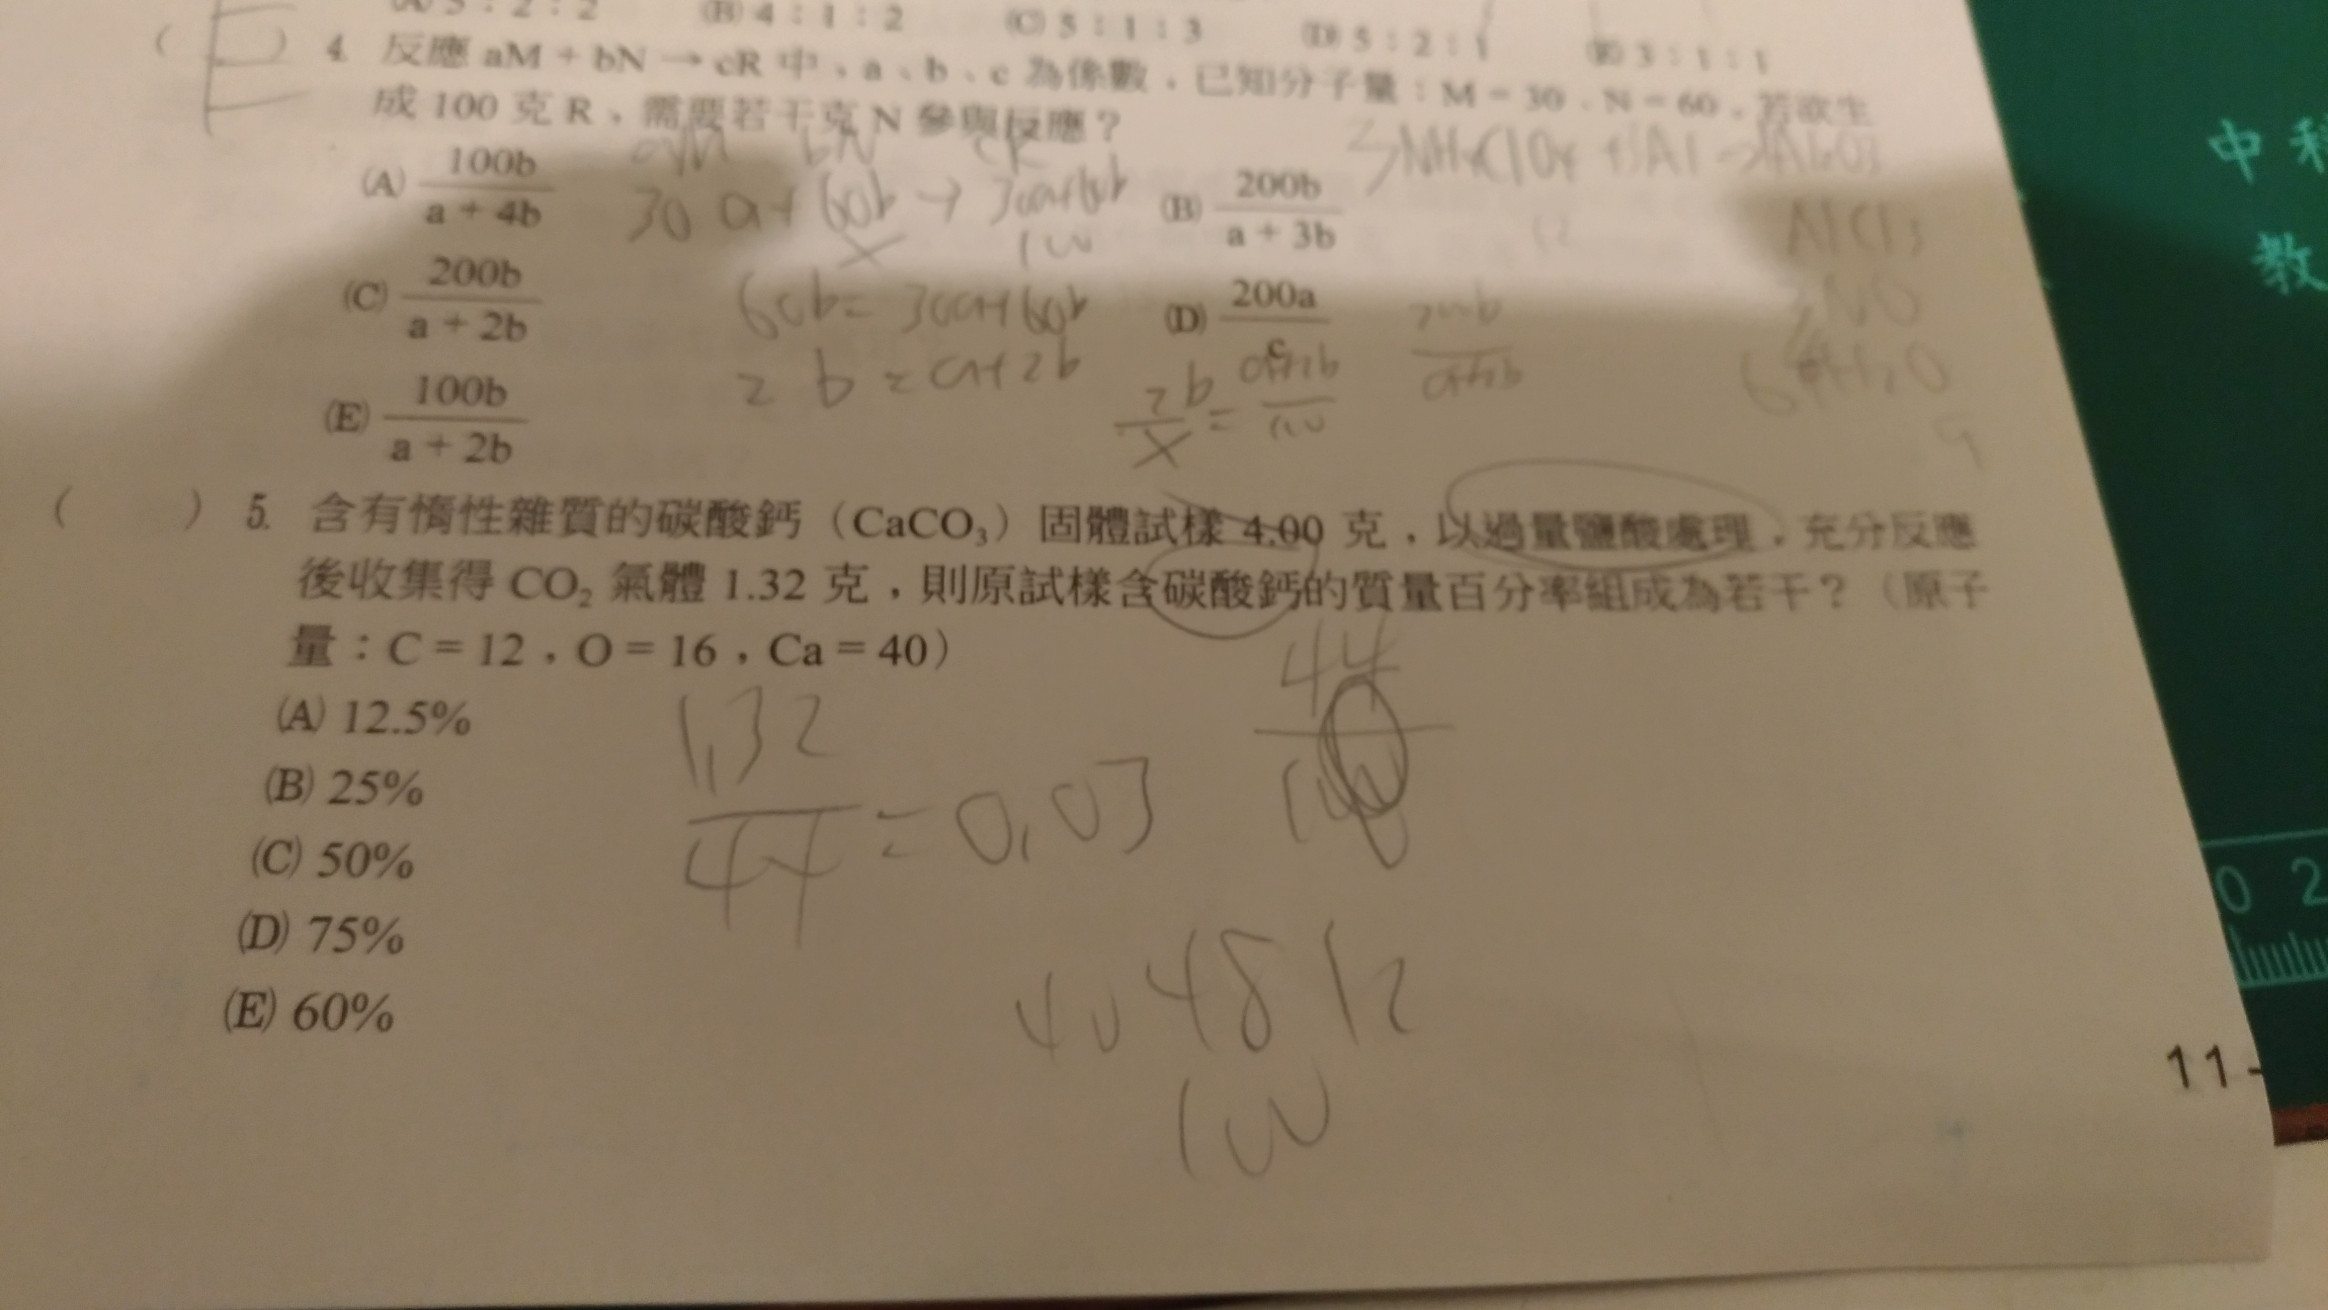 (A) 5:2:2 (B) 4:1:2 (C) 5:1:3 (D) 5:2:1 (E) 3:1:1
( ) 4. 反應 aM + bN → cR 中，a、b、c 為係數，已知分子量：M = 30、N = 60，若欲生
成 100 克 R，需要若干克 N 參與反應？
(A) 100b / a + 4b
(B) 200b / a + 3b
3NH4ClO4 + 3Al → Al2O3
AlCl3
3NO
6H2O
aM bN cR
30a + 60b → 30a+60b
x 100
(C) 200b / a + 2b
(D) 200a / c
60b = 30a+60b
2b = a+2b
2b / x = a+2b / 100
200b / a+2b
(E) 100b / a + 2b
( ) 5. 含有惰性雜質的碳酸鈣（CaCO₃）固體試樣 4.00 克，以過量鹽酸處理，充分反應
後收集得 CO₂ 氣體 1.32 克，則原試樣含碳酸鈣的質量百分率組成為若干？（原子
量：C = 12，O = 16，Ca = 40）
(A) 12.5%
(B) 25%
(C) 50%
(D) 75%
(E) 60%
1.32 / 44 = 0.03
44 / 100
40 48 12
100
11-
中科
教
0 2